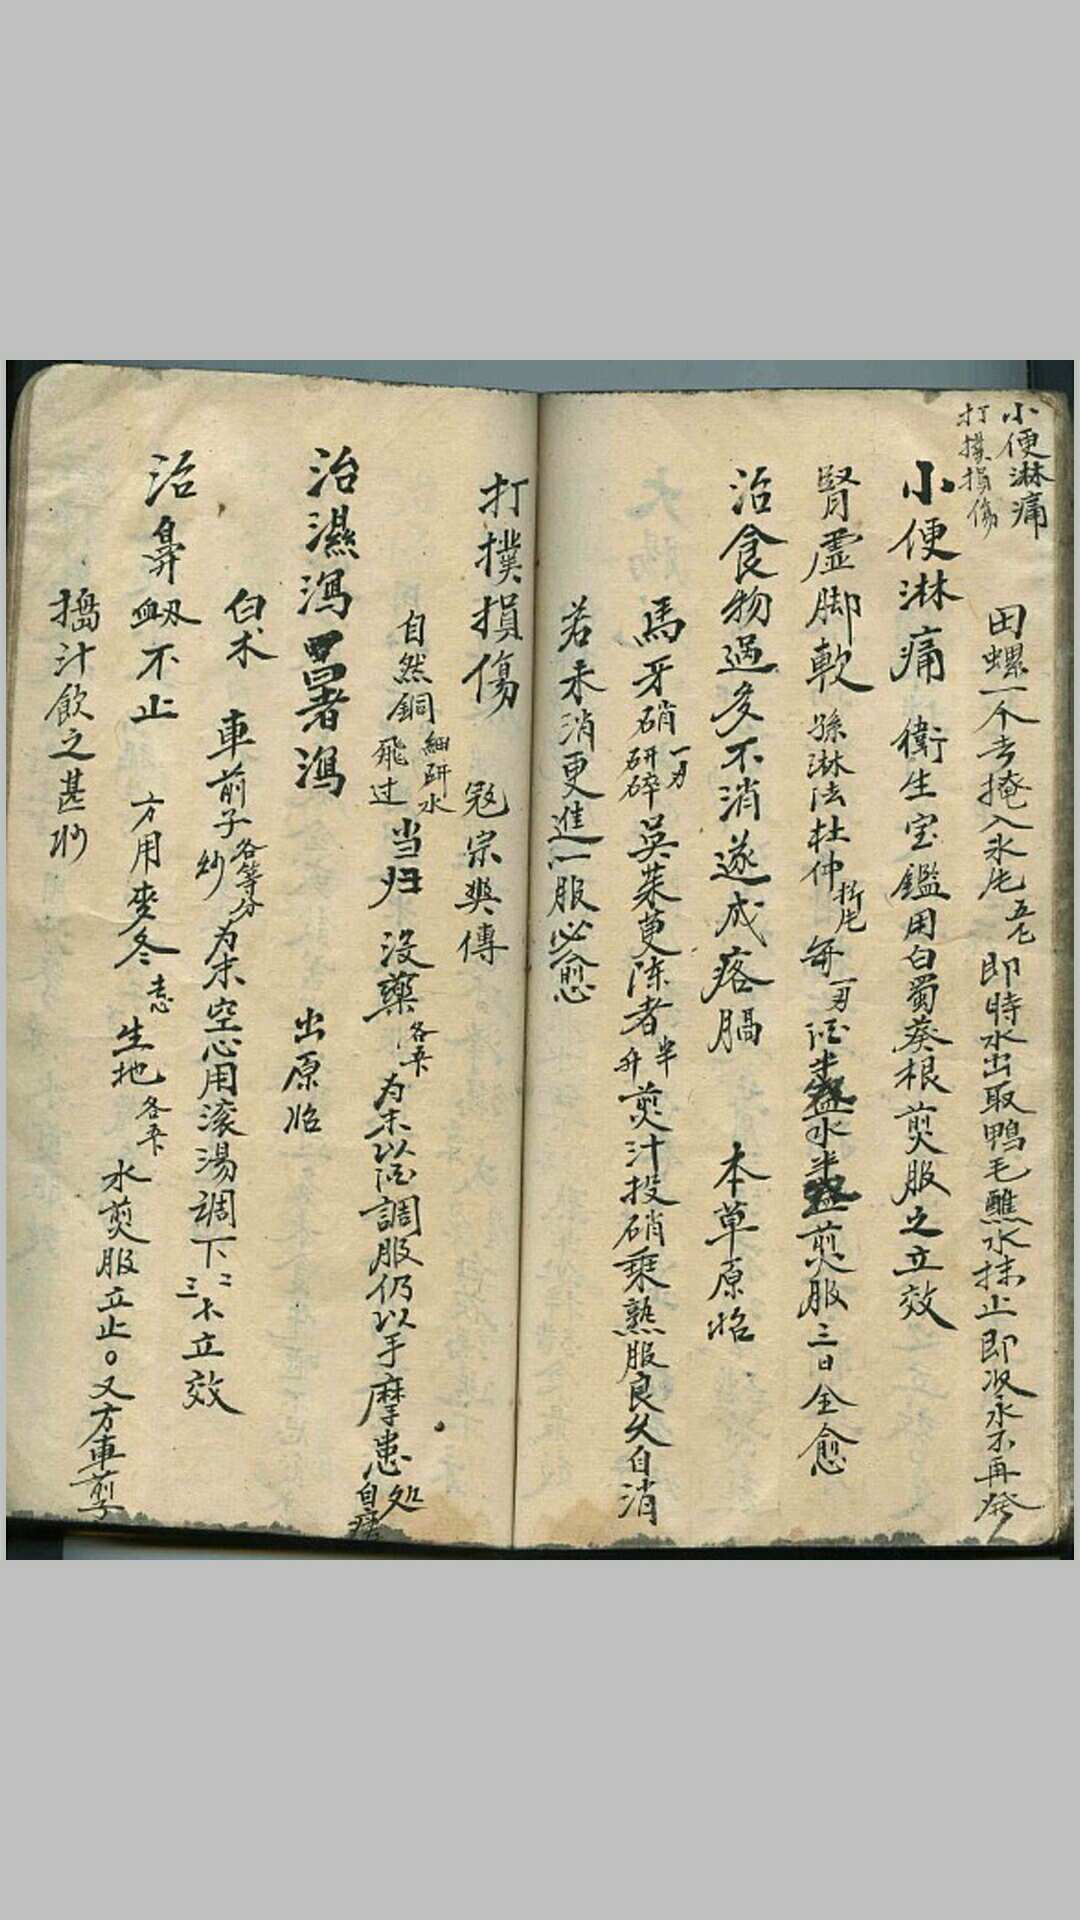 小便淋痛
打撲損傷
田螺一个去掩入氷片五七即時水出取鴨毛蘸水抹止即收永不再發
小便淋痛 衛生宝鑑用白蜀葵根煎服之立效
腎虛脚軟 孫淋法杜仲 每一刃酒半盞水半盞煎服三日全愈
治食物過多不消遂成痞膈 本草原始
馬牙硝一刃研碎吳茱萸陈者半升煎汁投硝乗熟服良久自消
若未消更進一服必愈
打撲損傷 冦宗奭傳
自然銅細研水飛过当归 没藥各 为末以酒調服仍以手摩患处自痊
治濕瀉暑瀉 出原始
白术 車前子炒各等分为末空心用滚湯調下二三 立效
治鼻衂不止 方用麥冬去心生地各 水煎服立止。又方車前子
搗汁飲之甚妙